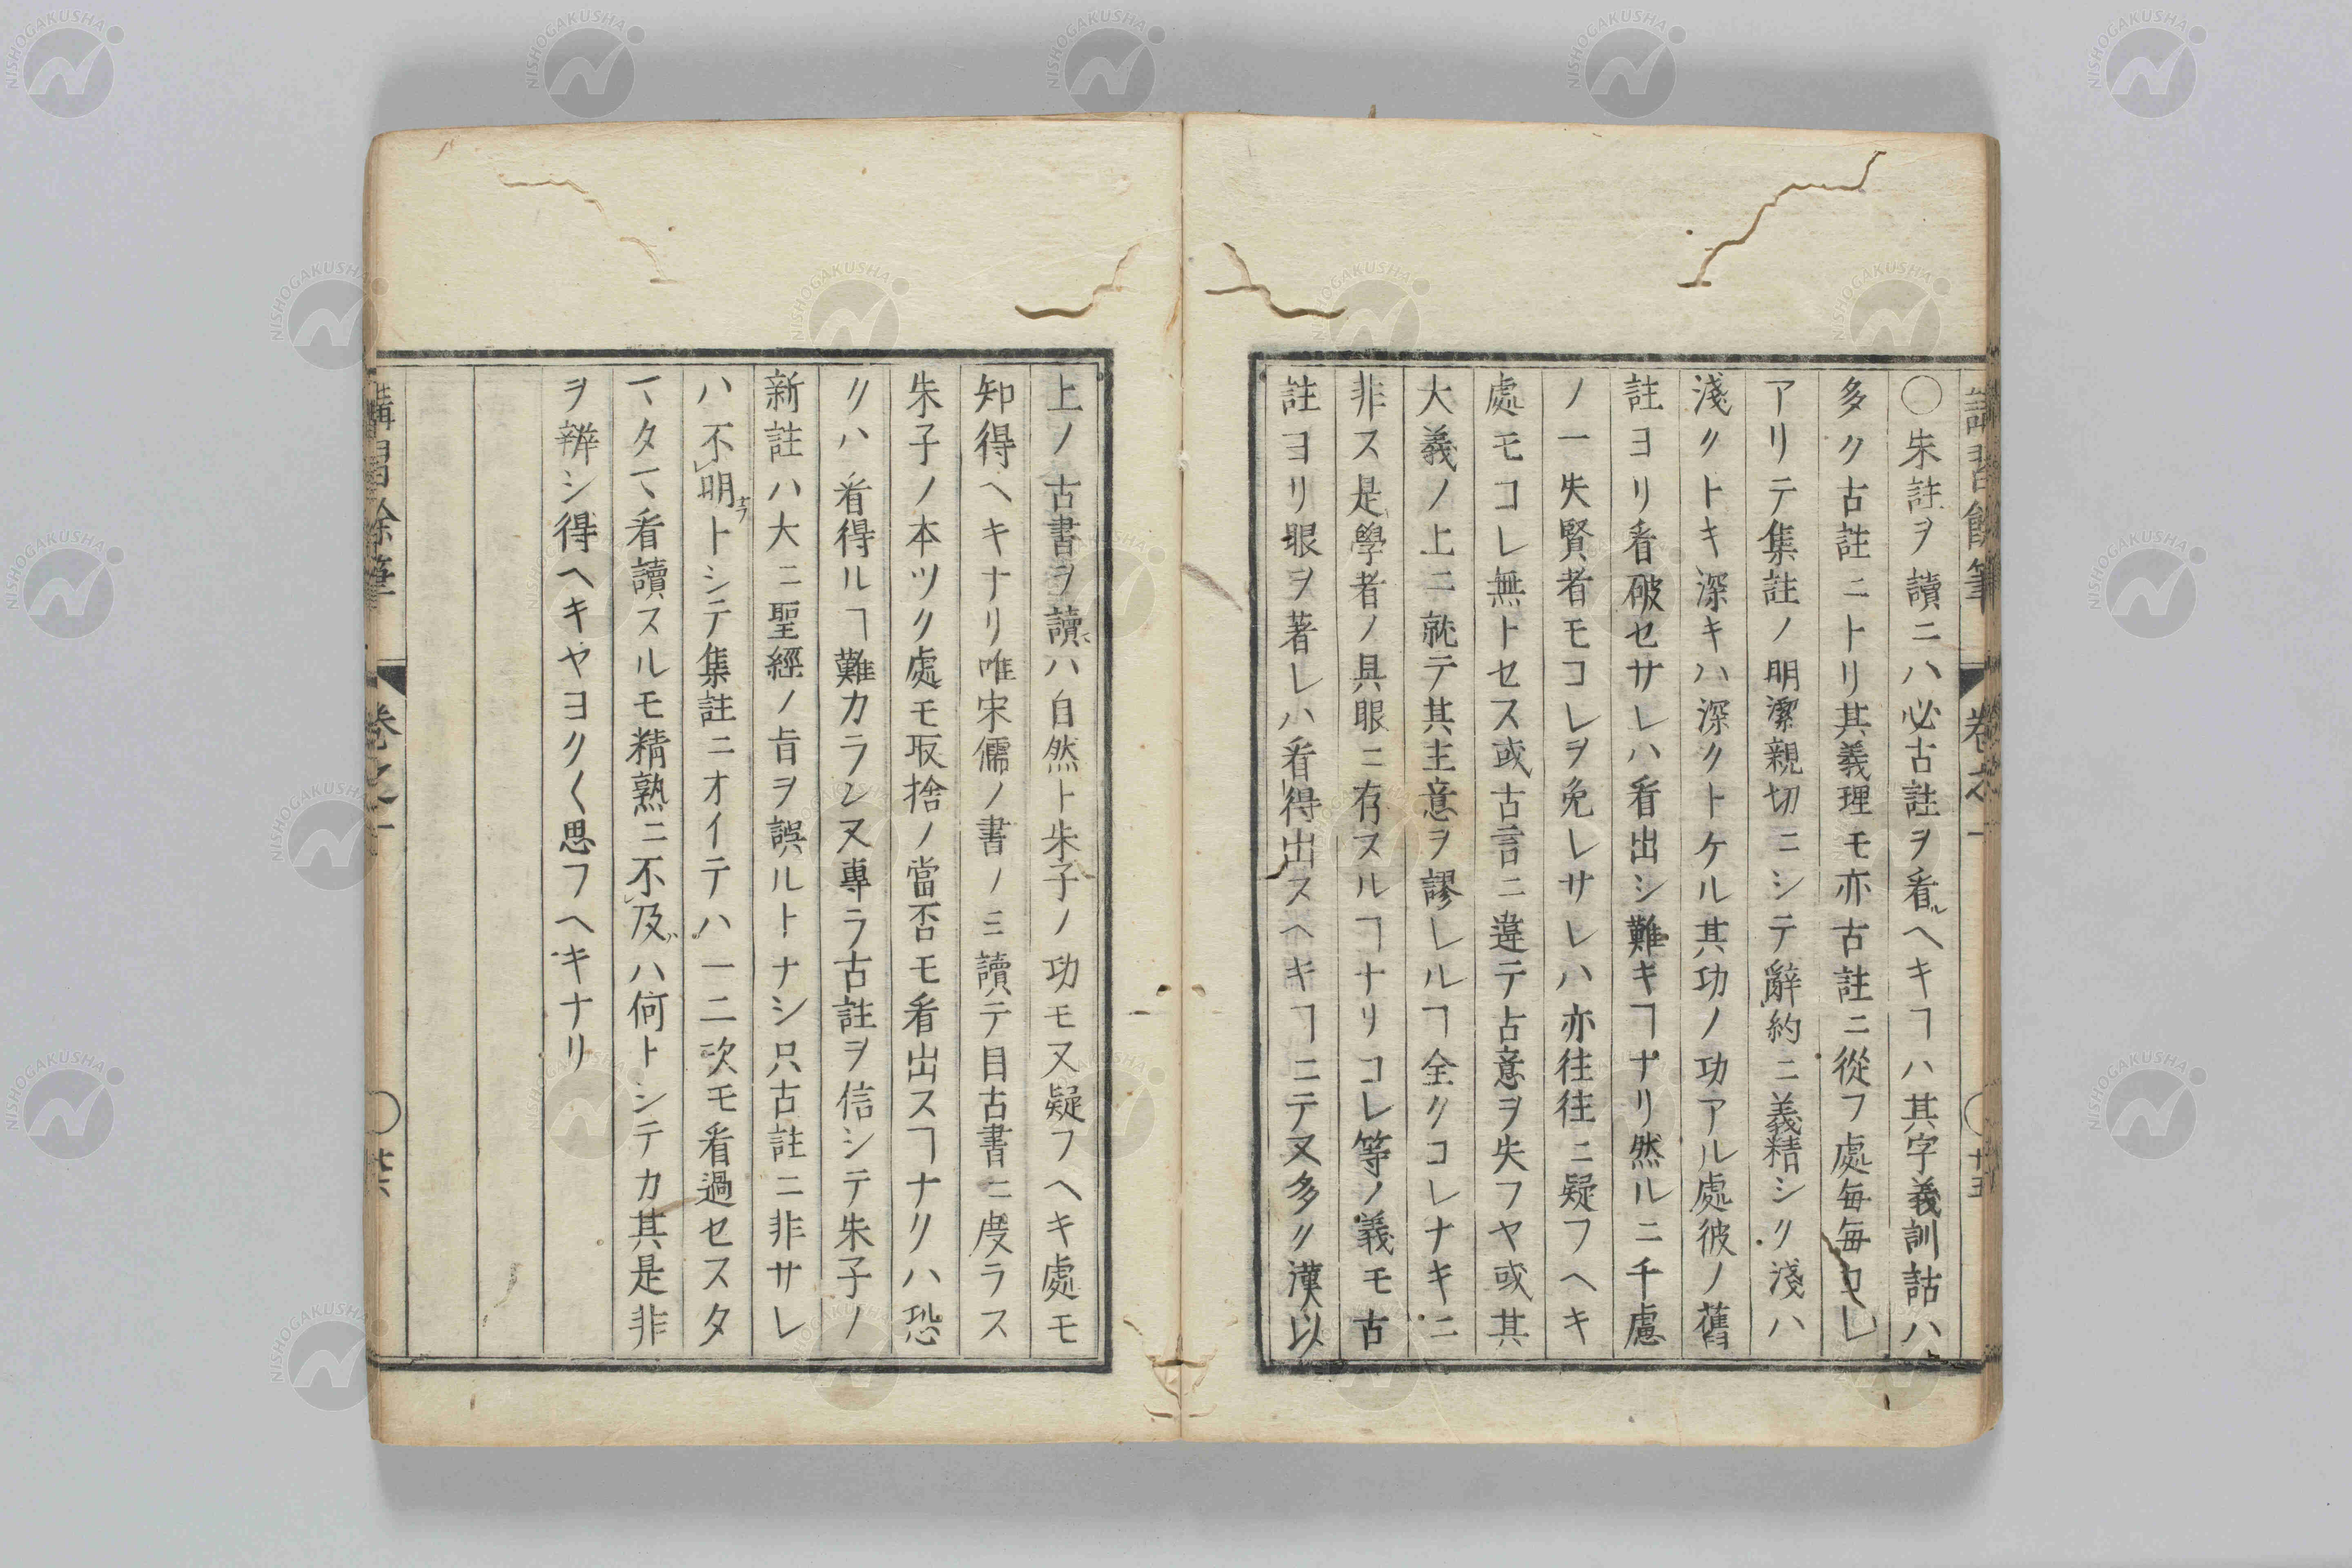 講習餘筆 卷之一 ○十五
○朱註ヲ讀ニハ必古註ヲ看ルヘキヿハ其字義訓詁ハ
多ク古註ニトリ其義理モ亦古註ニ從フ處毎毎コレ
アリテ集註ノ明潔親切ニシテ辭約ニ義精シク淺ハ
淺クトキ深キハ深クトケル其功ノ功アル處彼ノ舊
註ヨリ看破セサレハ看出シ難キヿナリ然ルニ千慮
ノ一失賢者モコレヲ免レサレハ亦往往ニ疑フヘキ
處モコレ無トセス或古言ニ違テ占意ヲ失フヤ或其
大義ノ上ニ就テ其主意ヲ謬レルヿ全クコレナキニ
非ス是學者ノ具眼ニ存スルヿナリコレ等ノ義モ古
註ヨリ眼ヲ著レハ看得出スヘキヿニテ又多ク漢以
上ノ古書ヲ讀テハ自然ト朱子ノ功モ又疑フヘキ處モ
知得ヘキナリ唯宋儒ノ書ノミ讀テ目古書ニ度ラス
朱子ノ本ツク處モ取捨ノ當否モ看出スヿナクハ恐
クハ看得ルヿ難カラン又專ラ古註ヲ信シテ朱子ノ
新註ハ大ニ聖經ノ旨ヲ誤ルトナシ只古註ニ非サレ
ハ不レ明ナラトシテ集註ニオイテハ一二次モ看過セスタ
マタマ看讀スルモ精熟ニ不レ及ハ何トシテカ其是非
ヲ辨シ得ヘキヤヨクヨク思フヘキナリ
講習餘筆 卷之一 ○十六
NISHOGAKUSHA